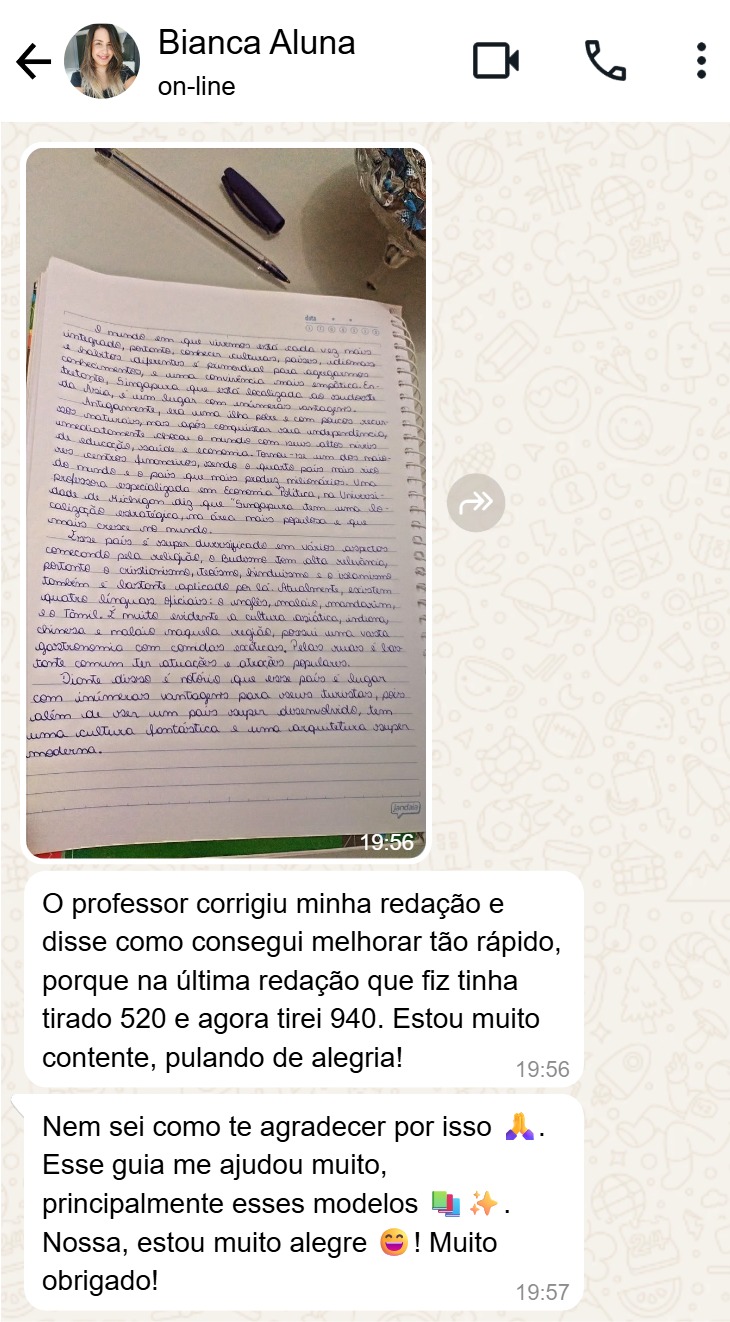 Bianca Aluna
on-line
data
O mundo em que vivemos está cada vez mais
integrado, portanto, conhecer culturas, países, idiomas
e hábitos diferentes é primordial para agregarmos
conhecimentos, e uma convivência mais empática. En-
tretanto, Singapura que está localizada ao sudeste
da Ásia, é um lugar com inúmeras vantagens.
Antigamente, era uma ilha pobre e com poucos recur-
sos naturais, mas após conquistar sua independência,
imediatamente chocou o mundo com seus altos níveis
de educação, saúde e economia. Tornou-se um dos maio-
res centros financeiros, sendo o quarto país mais rico
do mundo e o país que mais produz milionários. Uma
professora especializada em Economia Política, na Universi-
dade de Michigan diz que "Singapura tem uma lo-
calização estratégica, na área mais populosa e que
mais cresce no mundo.
Esse país é super diversificado em vários aspectos
começando pela religião, o Budismo tem alta relevância,
portanto o cristianismo, Taoísmo, hinduísmo e o islamismo
também é bastante aplicado por lá. Atualmente, existem
quatro línguas oficiais: o inglês, malaio, mandarim,
e o Tâmil. É muito evidente a cultura asiática, indiana,
chinesa e malaio naquela região, possui uma vasta
gastronomia com comidas exóticas. Pelas ruas é bas
tante comum ter atuações e atrações populares.
Diante disso é notório que esse país é lugar
com inúmeras vantagens para seus turistas, pois
além de ser um país super desenvolvido, tem
uma cultura fantástica e uma arquitetura super
moderna.
jandaia
19:56
O professor corrigiu minha redação e
disse como consegui melhorar tão rápido,
porque na última redação que fiz tinha
tirado 520 e agora tirei 940. Estou muito
contente, pulando de alegria!
19:56
Nem sei como te agradecer por isso 🙏.
Esse guia me ajudou muito,
principalmente esses modelos 📚✨.
Nossa, estou muito alegre 😄! Muito
obrigado!
19:57